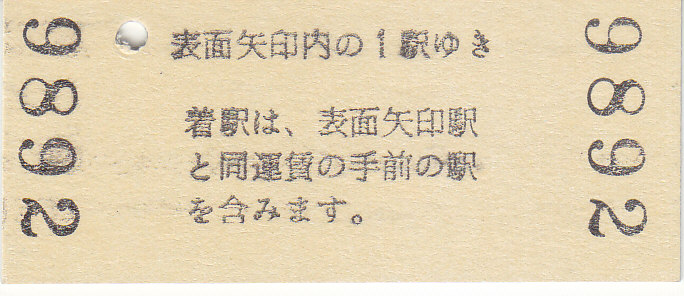 9892
表面矢印内の1駅ゆき
着駅は、表面矢印駅
と同運賃の手前の駅
を含みます。
9892